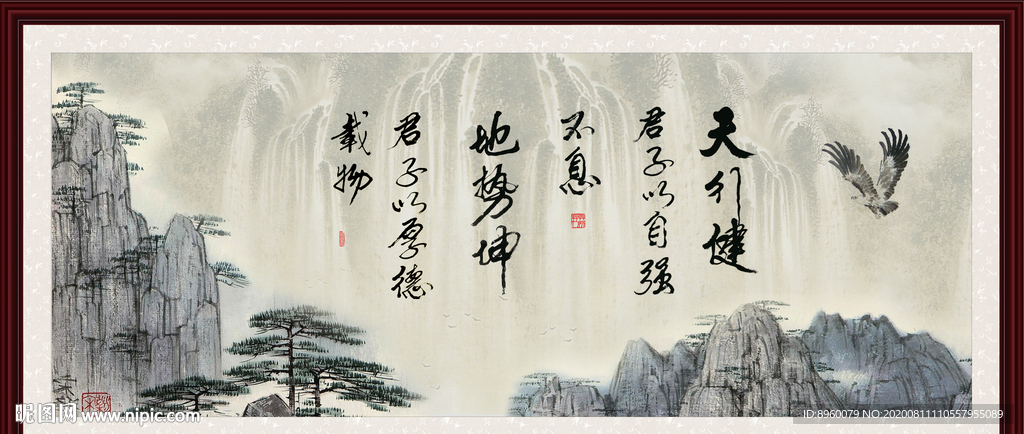 天行健
君子以自强
不息
地势坤
君子以厚德
载物
昵图网 www.nipic.com
ID:8960079 NO:20200811110557955089